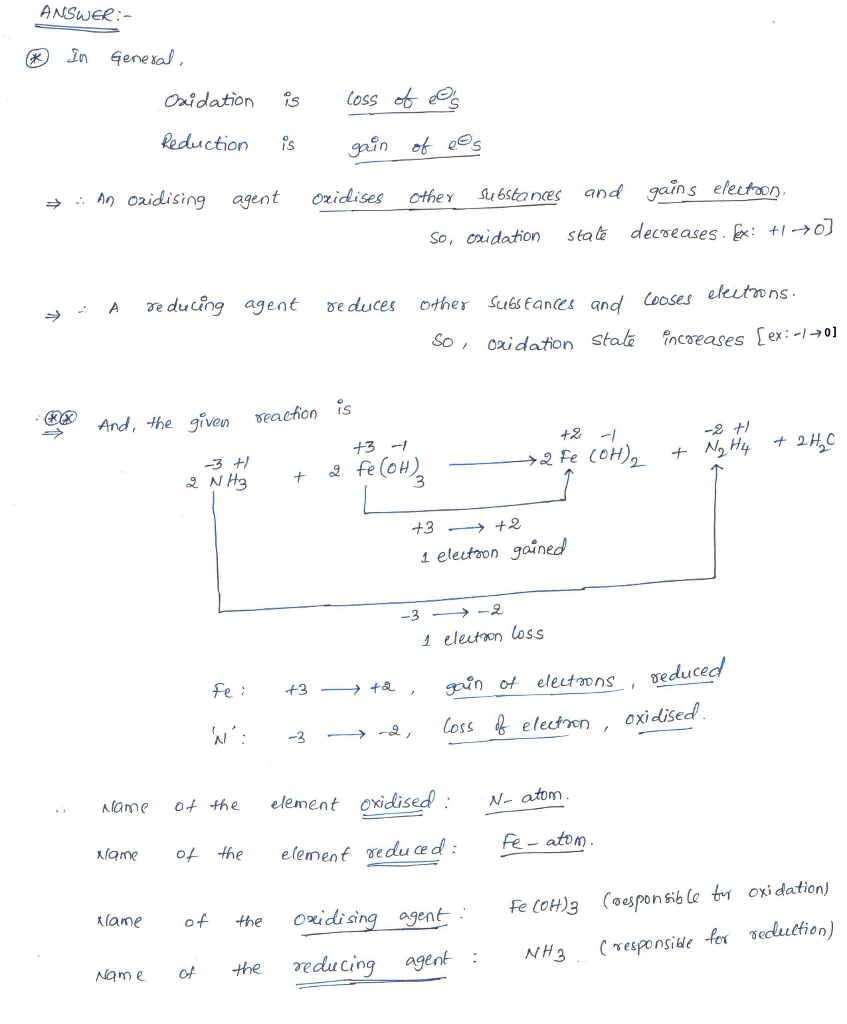 ANSWER:-
(*) In General,
Oxidation is loss of e⊖'s
Reduction is gain of e⊖s
⇒ ∴ An oxidising agent oxidises other substances and gains electron.
So, oxidation state decreases. [Ex: +1 → 0]
⇒ ∴ A reducing agent reduces other substances and looses electrons.
So, oxidation state increases [ex: -1 → 0]
(*)(*) ⇒ And, the given reaction is
-3 +1 +3 -1 +2 -1 -2 +1
2 NH3 + 2 Fe(OH)3 ⟶ 2 Fe (OH)2 + N2H4 + 2H2O
+3 ⟶ +2
1 electron gained
-3 ⟶ -2
1 electron loss
Fe : +3 ⟶ +2 , gain of electrons , reduced
'N' : -3 ⟶ -2, loss of electron , oxidised.
∴ Name of the element oxidised : N- atom.
Name of the element reduced : Fe - atom.
Name of the oxidising agent : Fe (OH)3 (responsible for oxidation)
Name of the reducing agent : NH3 (responsible for reduction)